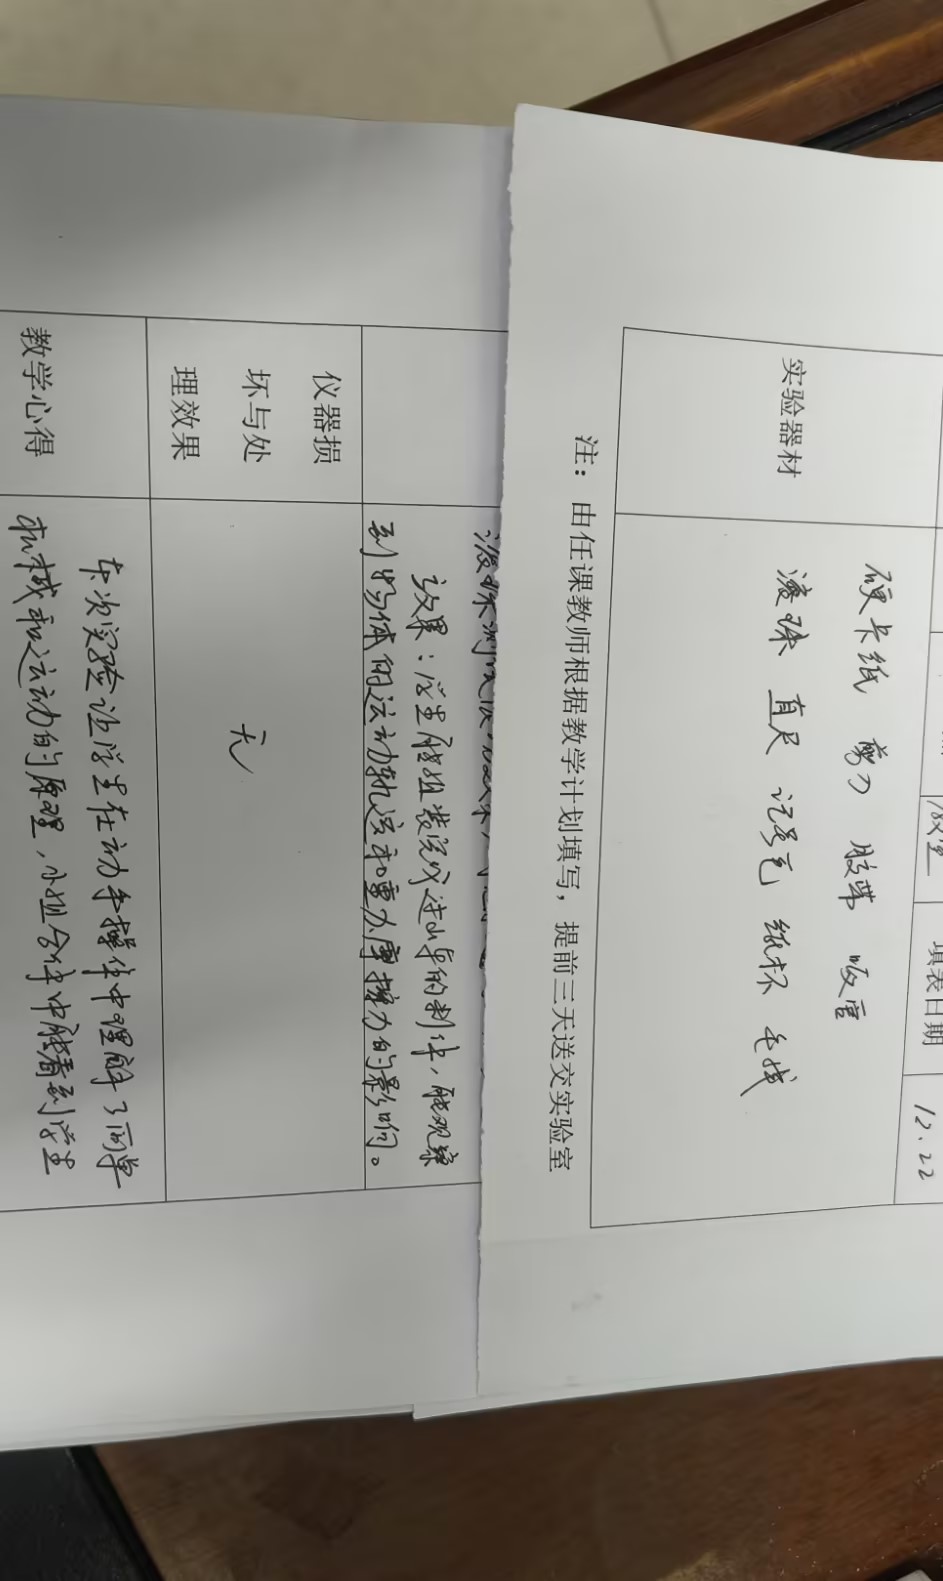 教室 填表日期 12.22
实验器材
硬卡纸 剪刀 胶带 吸管
滚珠 直尺 记号笔 纸杯 毛线
注：由任课教师根据教学计划填写，提前三天送交实验室
效果：学生能组装完成过山车的制作，能观察
到物体的运动轨迹和重力摩擦力的影响。
仪器损
坏与处
理效果
无
教学心得
本次实验让学生在动手操作中理解了简单
机械和运动的原理，小组合作中能看到学生